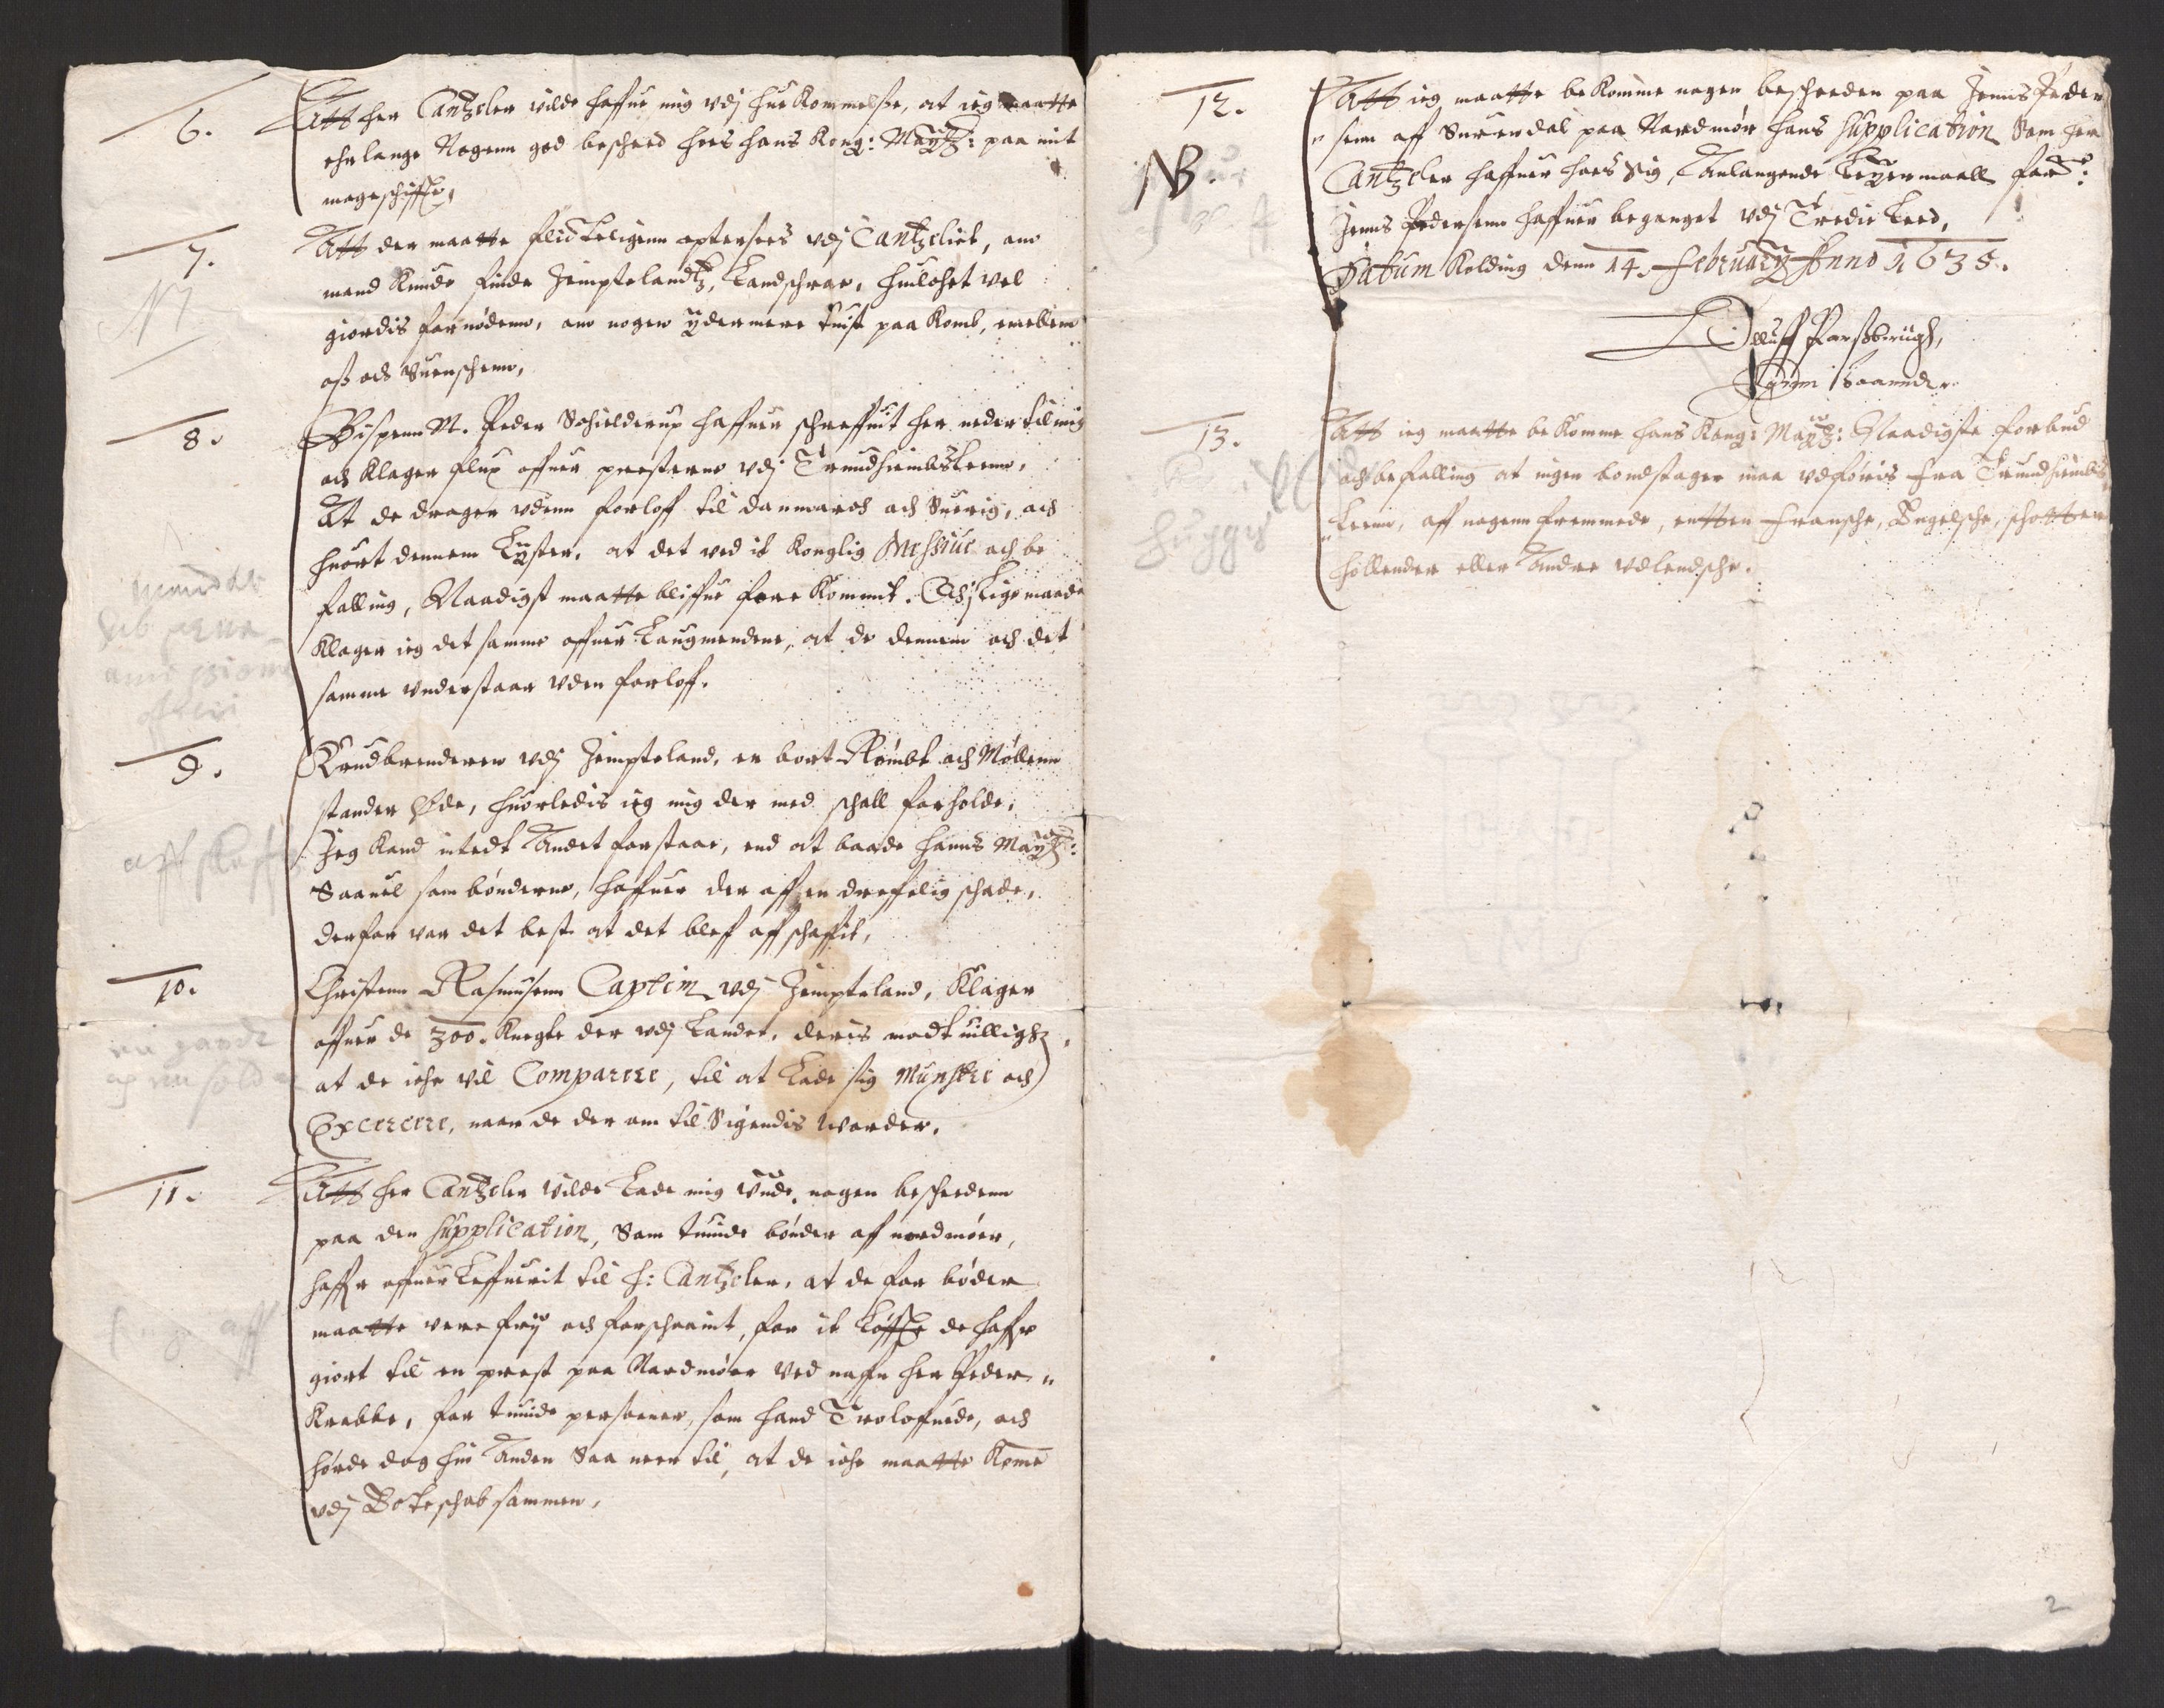 6.
Att her Cantzeler vilde haffue mig vdj hue Kommelsße, at ieg maatte
erlange Nogenn god bescheed hoes hans Kong: Maytz: paa mit
mageschiffte,
7.
Att der maatte flidteligenn eptersees vdj Cantzeliet, om
mand kunde finde Jempteland Landschrae, huilchet vel
giordis fornødenn, om nogen ÿdermere tuist paa komb, emellem
oß och Suenschenn,
8.
Bispenn M. Peder Schielderup haffuer schreffuit her neder til mig
och klager flux offuer presterne vdj Trundhiembsleenn,
At de drager vdenn forloff til danmarch och Suerig, och
huort dennem Lÿster, at det ved it Konglig Missiue och be
falling, Naadigst maatte bliffue fore Kommit. Och j lige maade
klager ieg det samme offuer Laugmendene, at de dennem och det
samme vnderstaar vden forloff.
9.
Krudbrenderen vdj Jempteland, er bort Rømbt och Møllenn
stander Øde, huorledis ieg mig der med schall forholde,
Jeg kand intedt Andet forstaae, end at baade hanns Maytz:
Saauel som bønderne, haffuer der aff en drefelig schade,
derfor var det best at det blef aff schaffit,
aff skaffis
10.
Christenn Rasmusenn Captein vdj Jempteland, klager
offuer de 300. knegte der vdj Landet, deris modtuillighed,
at de iche vil Comparere, til at Lade sig Munstre och
Exercere, naar de der om til Sigendis worder.
11.
Att her Cantzeler vilde Lade mig vide nogen bescheedenn
paa den Supplication, Som tuinde bønder aff nordmøer,
haffr offuer Leffuerit til H: Cantzeler, at de for bøder
maatte vere frÿ och forschaant, for it Løffte de haffr
giort til en prest paa Nordmøer ved naffn her Peder
Krabbe, for tuinde personer, som hand Troloffuede, och
hørde dog hin Anden Saa neer til, at de iche maatte Kome
vdj Ecteschab sammen,
12.
NB.
Att ieg maatte be Komme nogen bescheeden paa Jenns Peder
senn aff Surendal paa Nordmør hans Supplication Som her
Cantzeler haffuer hoes Sig, Anlangende Leÿermaall for:ne
Jenns Pedersenn haffuer beganget vdj Tredie Leed,
Datum Kolding denn 14. Februarÿ Anno 1638.
Olluff Parsßbergh,
Eigenn haannd
13.
Att ieg maatte be Komme hans Kong: Maytz: Naadigste forbud
och befalling at ingen bondstager maa vdføris fra Trundhiembs
Leenn, aff nogenn fremmede, entten Fransche, Engelsche, schotter
hollender eller Andre vdlendsche.
2